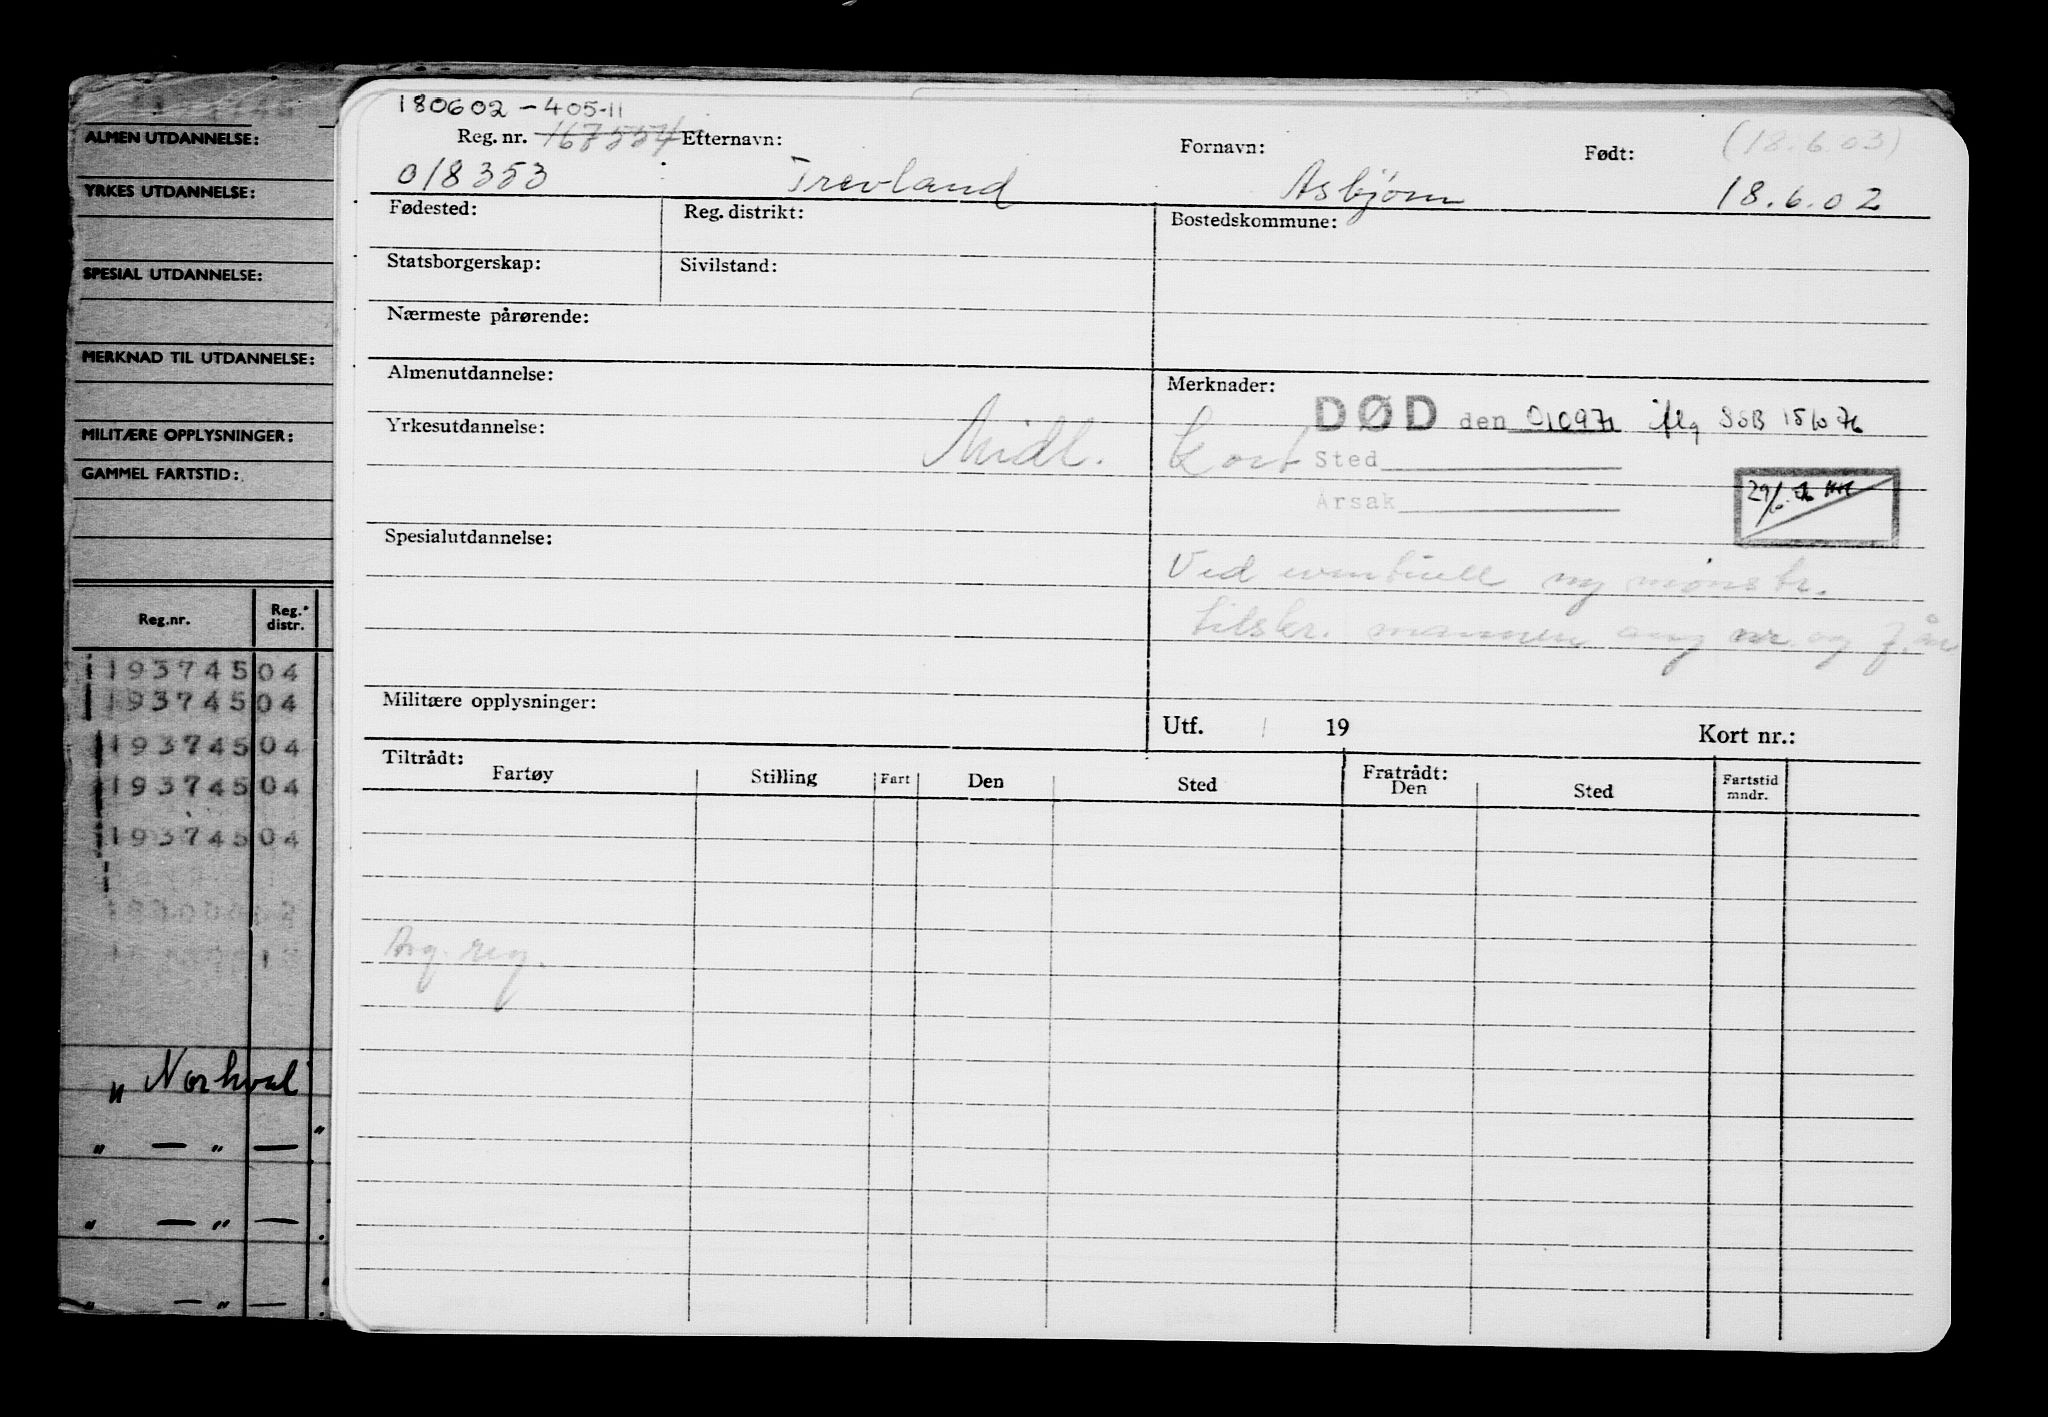 180602-405-11
Reg. nr. 167554 Efternavn: Fornavn: Født: (18.6.03)
018353 Trevland Asbjørn 18.6.02
Fødested: Reg. distrikt: Bostedskommune:
Statsborgerskap: Sivilstand:
Nærmeste pårørende:
Almenutdannelse: Merknader:
DØD den 010971 iflg SSB 15/6 76
Yrkesutdannelse: Midl. Kort
Sted
Årsak
29/6
Spesialutdannelse:
Ved eventuell ny mønstr.
tilskr. mannen ang nr. og f. år
Militære opplysninger:
Utf. 19 Kort nr.:
Tiltrådt: Fratrådt:
Fartøy Stilling Fart Den Sted Den Sted Fartstid
mndr.
Avg. reg.
ALMEN UTDANNELSE:
YRKES UTDANNELSE:
SPESIAL UTDANNELSE:
MERKNAD TIL UTDANNELSE:
MILITÆRE OPPLYSNINGER:
GAMMEL FARTSTID:
Reg.nr. Reg.
distr.
193745 04
193745 04
193745 04
193745 04
193745 04
" Norhval
" — " —
" — " —
" — " —